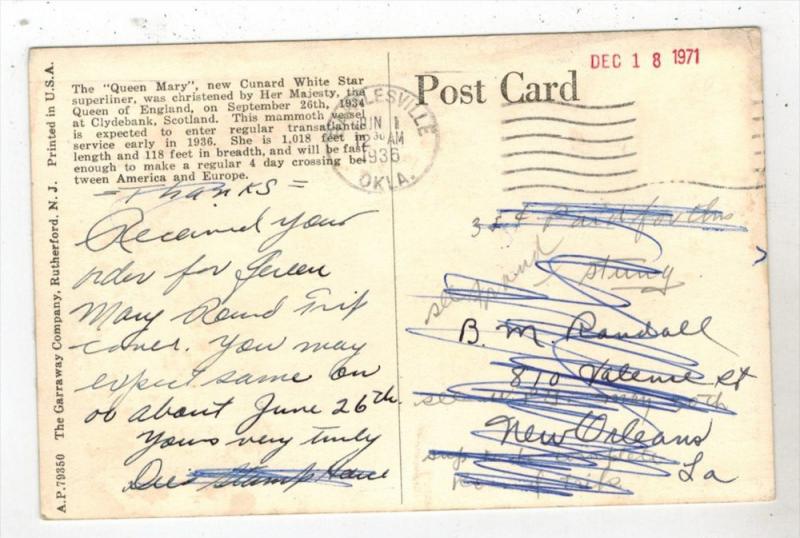 DEC 18 1971
Post Card
The "Queen Mary", new Cunard White Star
superliner, was christened by Her Majesty, the
Queen of England, on September 26th, 1934
at Clydebank, Scotland. This mammoth vessel
is expected to enter regular transatlantic
service early in 1936. She is 1,018 feet in
length and 118 feet in breadth, and will be fast
enough to make a regular 4 day crossing be-
tween America and Europe.
JUN 1
AM
1936
OKLA.
A.P.79350 The Garraway Company, Rutherford, N. J. Printed in U.S.A.
= Thanks =
Received your
order for Queen
Mary Round Trip
cover. You may
expect same on
or about June 26th.
Yours very truly
Stamp
Paid for this
stung
B. M. Randall
810 Valence St
New Orleans
La